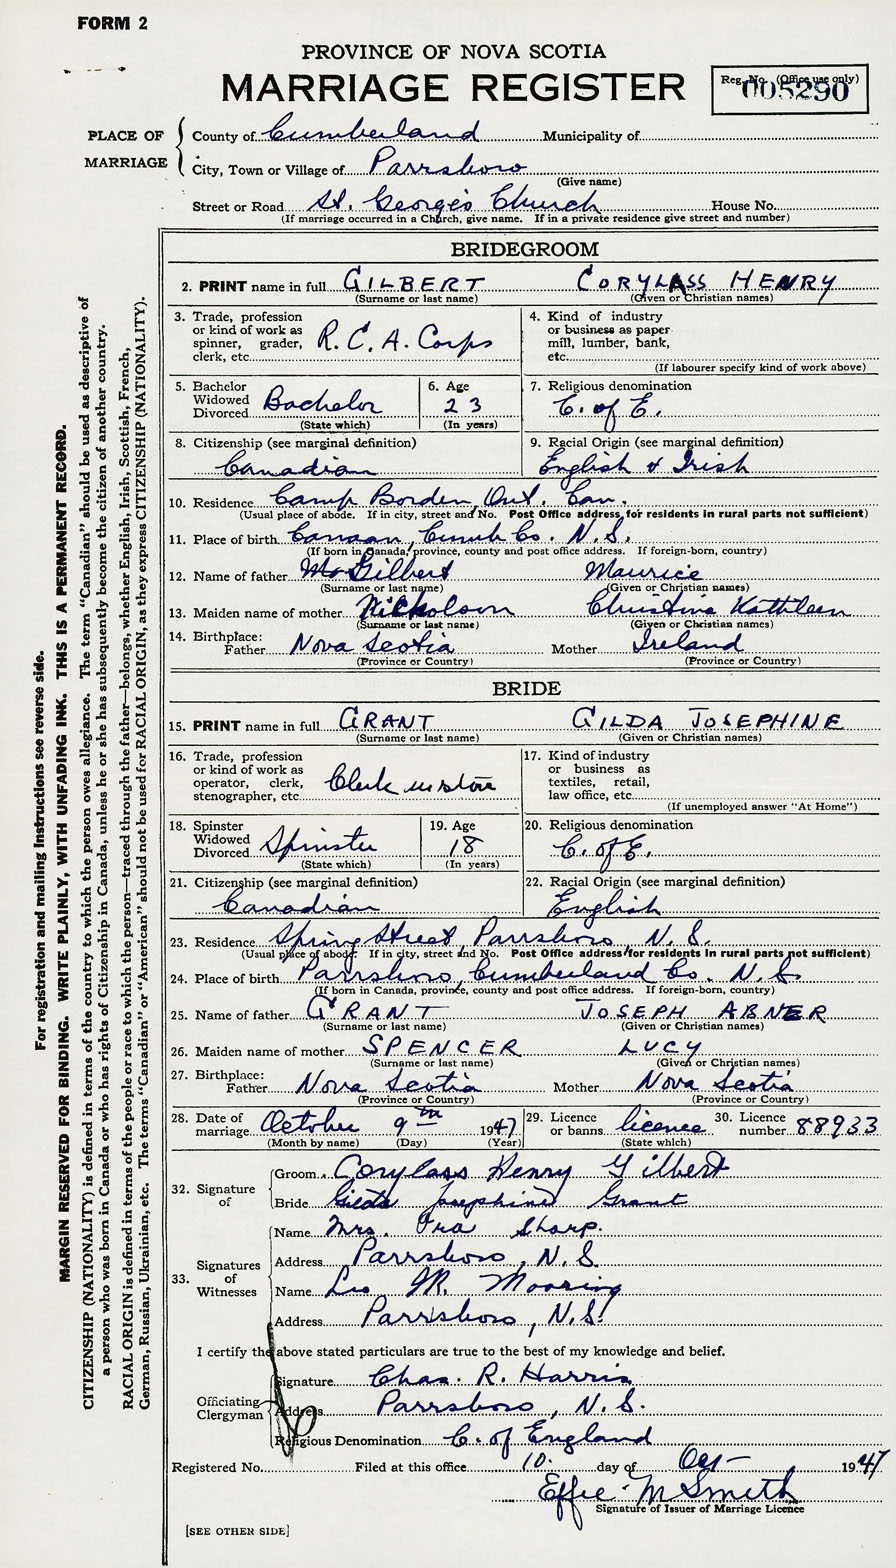 FORM 2
PROVINCE OF NOVA SCOTIA
MARRIAGE REGISTER
Reg. No. (Office use only)
005290
PLACE OF MARRIAGE
County of Cumberland Municipality of
City, Town or Village of Parrsboro
(Give name)
Street or Road St. George's Church House No.
(If marriage occurred in a Church, give name. If in a private residence give street and number)
BRIDEGROOM
2. PRINT name in full GILBERT CORYLASS HENRY
(Surname or last name) (Given or Christian names)
3. Trade, profession or kind of work as spinner, grader, clerk, etc. R.C.A. Corps
4. Kind of industry or business as paper mill, lumber, bank, etc.
(If labourer specify kind of work above)
5. Bachelor Widowed Divorced Bachelor
(State which)
6. Age 23
(In years)
7. Religious denomination C. of E.
8. Citizenship (see marginal definition) Canadian
9. Racial Origin (see marginal definition) English & Irish
10. Residence Camp Borden, Ont. Can.
(Usual place of abode. If in city, street and No. Post Office address for residents in rural parts not sufficient)
11. Place of birth Canaan, Cumb Co. N.S.
(If born in Canada, province, county and post office address. If foreign-born, country)
12. Name of father Gilbert Maurice
(Surname or last name) (Given or Christian names)
13. Maiden name of mother Nickolson Christine Kathleen
(Surname or last name) (Given or Christian names)
14. Birthplace:
Father Nova Scotia Mother Ireland
(Province or Country) (Province or Country)
BRIDE
15. PRINT name in full GRANT GILDA JOSEPHINE
(Surname or last name) (Given or Christian names)
16. Trade, profession or kind of work as operator, clerk, stenographer, etc. Clerk in store
17. Kind of industry or business as textiles, retail, law office, etc.
(If unemployed answer "At Home")
18. Spinster Widowed Divorced Spinster
(State which)
19. Age 18
(In years)
20. Religious denomination C. of E.
21. Citizenship (see marginal definition) Canadian
22. Racial Origin (see marginal definition) English
23. Residence Spring Street, Parrsboro, N.S.
(Usual place of abode. If in city, street and No. Post Office address for residents in rural parts not sufficient)
24. Place of birth Parrsboro, Cumberland Co. N.S.
(If born in Canada, province, county and post office address. If foreign-born, country)
25. Name of father GRANT JOSEPH ABNER
(Surname or last name) (Given or Christian names)
26. Maiden name of mother SPENCER LUCY
(Surname or last name) (Given or Christian names)
27. Birthplace:
Father Nova Scotia Mother Nova Scotia
(Province or Country) (Province or Country)
28. Date of marriage October 9th 1947
(Month by name) (Day) (Year)
29. Licence or banns licence
(State which)
30. Licence number 88933
32. Signature of
Groom Corylass Henry Gilbert
Bride Gilda Josephine Grant
33. Signatures of Witnesses
Name Mrs. Ira Sharp.
Address Parrsboro, N.S.
Name Leo M. Mooring
Address Parrsboro, N.S.
I certify the above stated particulars are true to the best of my knowledge and belief.
Officiating Clergyman
Signature Chas. R. Harris
Address Parrsboro, N.S.
Religious Denomination C. of England
Registered No. Filed at this office 10. day of Oct 1947
Effie M Smith
Signature of Issuer of Marriage Licence
[SEE OTHER SIDE]
For registration and mailing instructions see reverse side.
MARGIN RESERVED FOR BINDING. WRITE PLAINLY, WITH UNFADING INK. THIS IS A PERMANENT RECORD.
CITIZENSHIP (NATIONALITY) is defined in terms of the country to which the person owes allegiance. The term "Canadian" should be used as descriptive of
a person who was born in Canada or who has rights of Citizenship in Canada, unless he or she has subsequently become the citizen of another country.
RACIAL ORIGIN is defined in terms of the people or race to which the person—traced through the father—belongs, whether English, Irish, Scottish, French,
German, Russian, Ukrainian, etc. The terms "Canadian" or "American" should not be used for RACIAL ORIGIN, as they express CITIZENSHIP (NATIONALITY).